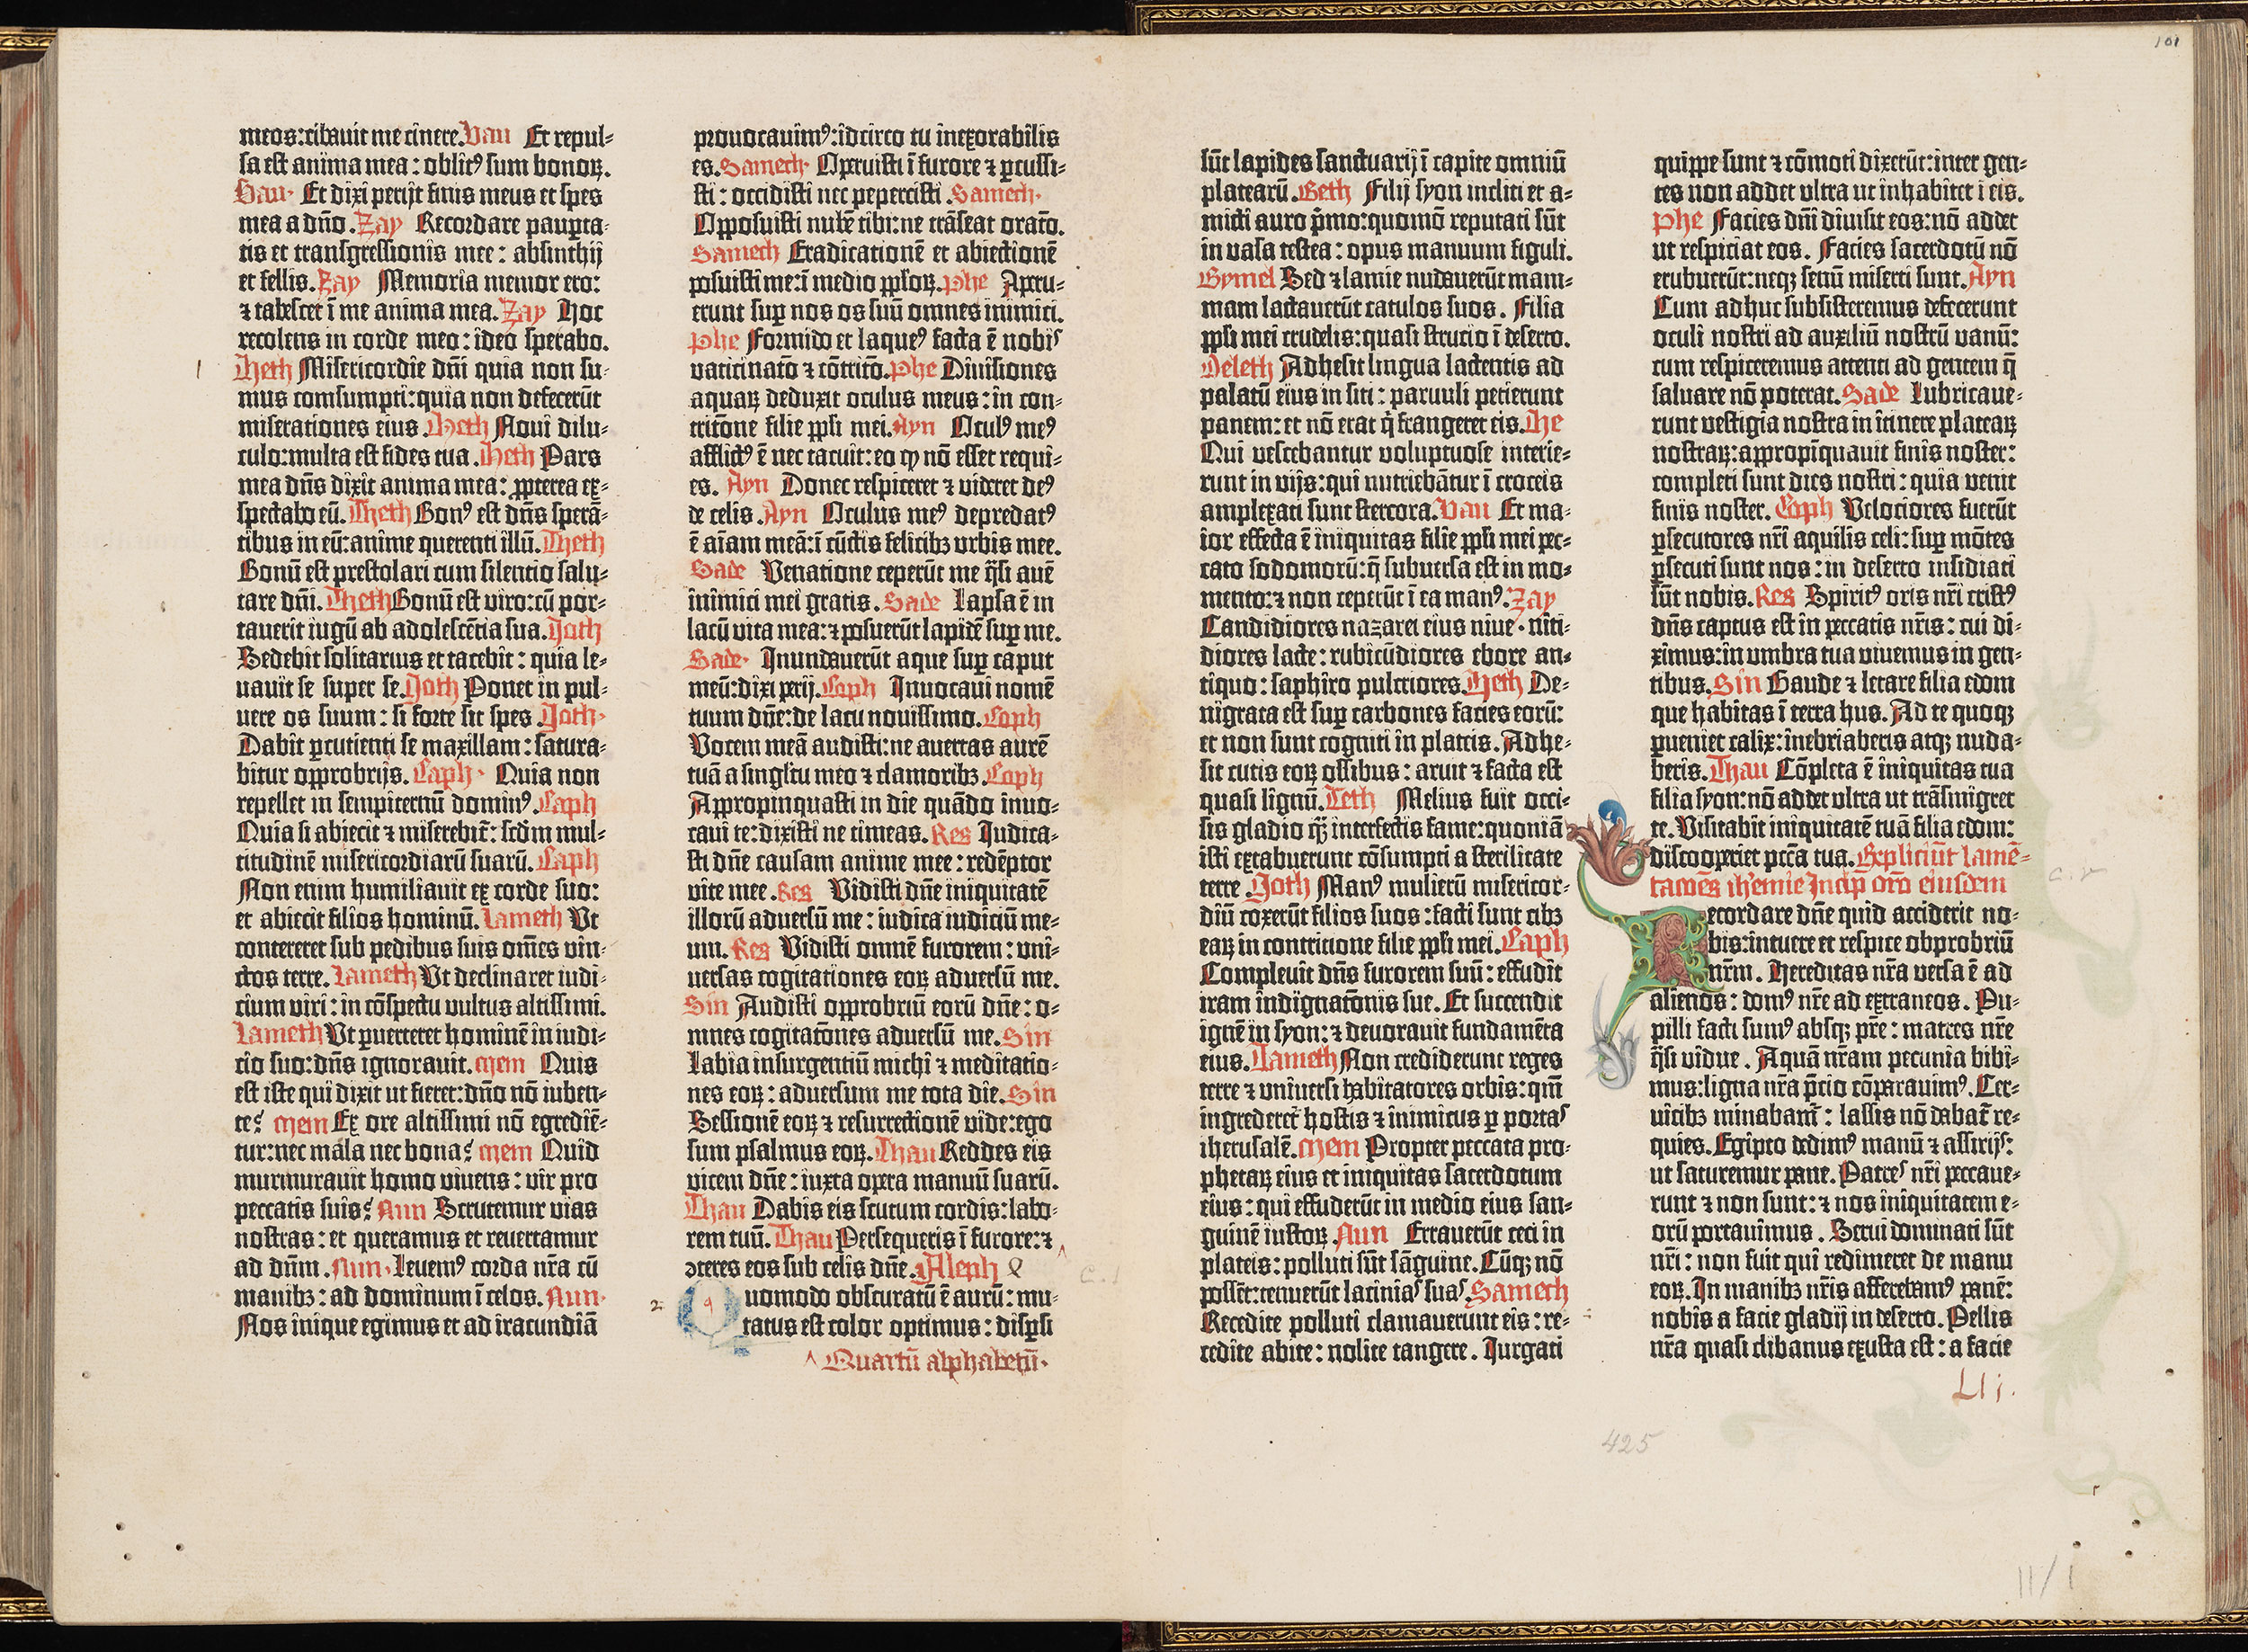 meos:cibauit me cinere. Vau Et repul⸗
sa est anima mea: oblitꝰ sum bonoꝝ.
Vau· Et dixi perijt finis meus et spes
mea a dn̄o. Zay Recordare paup̲ta⸗
tis et transgressionis mee: absinthij
et fellis. Zay Memoria memor ero:
⁊ tabescet ī me anima mea. Zay Hoc
recolens in corde meo: ideo sperabo.
1 Heth Misericordie dn̄i quia non su⸗
mus comsumpti: quia non defecerūt
miserationes eius. Heth Noui dilu⸗
culo: multa est fides tua. Heth Pars
mea dn̄s dixit anima mea: ꝓpterea ex⸗
spectabo eū. Theth Bonꝰ est dn̄s sperā⸗
tibus in eū: anime querenti illū. Theth
Bonū est prestolari cum silentio salu⸗
tare dn̄i. Theth Bonū est viro: cū por⸗
tauerit iugū ab adolescētia sua. Joth
Sedebit solitarius et tacebit: quia le⸗
uauit se super se. Joth Ponet in pul⸗
uere os suum: si forte sit spes. Joth·
Dabit ꝑcutienti se maxillam: satura⸗
bitur opprobrijs. Caph· Quia non
repellet in sempiternū dominꝰ. Caph
Quia si abiecit ⁊ miserebit̄: scd̄m mul⸗
titudinē misericordiarū suarū. Caph
Non enim humiliauit ex corde suo:
et abiecit filios hominū. Lameth Vt
contereret sub pedibus suis om̄es vin⸗
ctos terre. Lameth Vt declinaret iudi⸗
cium viri: in cōspectu vultus altissimi.
Lameth Vt ꝑuerteret hominē in iudi⸗
cio suo: dn̄s ignorauit. Mem Quis
est iste qui dixit ut fieret: dn̄o nō iuben⸗
te? Mem Ex ore altissimi nō egrediē⸗
tur: nec mala nec bona? Mem Quid
murmurauit homo viuens: vir pro
peccatis suis? Nun Scrutemur vias
nostras: et queramus et reuertamur
ad dn̄m. Nun· Leuemꝰ corda nr̄a cū
manibꝫ: ad dominum ī celos. Nun·
Nos inique egimus et ad iracundiā
prouocauimꝰ: idcirco tu inexorabilis
es. Samech· Operuisti ī furore ⁊ ꝑcussi⸗
sti: occidisti nec pepercisti. Samech·
Opposuisti nubē tibi: ne trāseat orat̄o.
Samech Eradicationē et abiectionē
posuisti me: ī medio pp̄loꝝ. Phe Aperu⸗
erunt suꝑ nos os suū omnes inimici.
Phe Formido et laqueꝰ facta ē nobis
vaticinat̄o ⁊ cōtrit̄o. Phe Diuisiones
aquaꝝ deduxit oculus meus: in con⸗
trit̄one filie pp̄li mei. Ayn Oculꝰ meꝰ
afflictꝰ ē nec tacuit: eo ꝙ nō esset requi⸗
es. Ayn Donec respiceret ⁊ videret deꝰ
de celis. Ayn Oculus meꝰ depredatꝰ
ē aīam meā: ī cūctis filiabꝫ vrbis mee.
Sade Venatione ceperūt me q̄si auē
inimici mei gratis. Sade Lapsa ē in
lacū vita mea: ⁊ posuerūt lapidē suꝑ me.
Sade· Inundauerūt aque suꝑ caput
meū: dixi perij. Coph Inuocaui nomē
tuum dn̄e: de lacu nouissimo. Coph
Vocem meā audisti: ne auertas aurē
tuā a singl̄tu meo ⁊ clamoribꝫ. Coph
Appropinquasti in die quādo inuo⸗
caui te: dixisti ne timeas. Res Iudica⸗
sti dn̄e causam anime mee: redēptor
vite mee. Res Vidisti dn̄e iniquitatē
illorū aduersū me: iudica iudiciū me⸗
um. Res Vidisti omnē furorem: uni⸗
uersas cogitationes eoꝝ aduersū me.
Sin Audisti opprobriū eorū dn̄e: o⸗
mnes cogitat̄ones aduersū me. Sin
Labia insurgentiū michi ⁊ meditatio⸗
nes eoꝝ: aduersum me tota die. Sin
Sessionē eoꝝ ⁊ resurrectionē vide: ego
sum psalmus eoꝝ. Thau Reddes eis
vicem dn̄e: iuxta opera manuū suarū.
Thau Dabis eis scutum cordis: labo⸗
rem tuū. Thau Persequeris ī furore: ⁊
ꝯteres eos sub celis dn̄e. Aleph
2 Quomodo obscuratū ē aurū: mu⸗
tatus est color optimus: disꝑsi
^ Quartū alphabetū·
c. 1
101
sūt lapides sanctuarij ī capite omniū
platearū. Beth Filij syon incliti et a⸗
micti auro p̄mo: quomō reputati sūt
in vasa testea: opus manuum figuli.
Gymel Sed ⁊ lamie nudauerūt mam⸗
mam lactauerūt catulos suos. Filia
pp̄li mei crudelis: quasi strucio ī deserto.
Deleth Adhesit lingua lactentis ad
palatū eius in siti: paruuli petierunt
panem: et nō erat q̇ frangeret eis. He
Qui vescebantur voluptuose interie⸗
runt in vijs: qui nutriebātur ī croceis
amplexati sunt stercora. Vau Et ma⸗
ior effecta ē iniquitas filie pp̄li mei pec⸗
cato sodomorū: q̄ subuersa est in mo⸗
mento: ⁊ non ceperūt ī ea manꝰ. Zay
Candidiores nazarei eius niue· niti⸗
diores lacte: rubicūdiores ebore an⸗
tiquo: saphiro pulcriores. Heth De⸗
nigrata est suꝑ carbones facies eorū:
et non sunt cogniti in plateis. Adhe⸗
sit cutis eoꝝ ossibus: aruit ⁊ facta est
quasi lignū. Teth Melius fuit occi⸗
sis gladio q̄ꝫ interfectis fame: quoniā
isti extabuerunt cōsumpti a sterilitate
terre. Joth Manꝰ mulierū misericor⸗
diū coxerūt filios suos: facti sunt cibꝫ
eaꝝ in contritione filie pp̄li mei. Caph
Compleuit dn̄s furorem suū: effudit
iram indignat̄onis sue. Et succendit
ignē in syon: ⁊ deuorauit fundamēta
eius. Lameth Non crediderunt reges
terre ⁊ vniuersi habitatores orbis: qm̄
ingrederet̄ hostis ⁊ inimicus ꝑ portas
iherusalē. Mem Propter peccata pro⸗
phetaꝝ eius et iniquitas sacerdotum
eius: qui effuderūt in medio eius san⸗
guinē iustoꝝ. Nun Errauerūt ceci in
plateis: polluti sūt sāguine. Cūqꝫ nō
possēt: tenuerūt lacinias suas. Samech
Recedite polluti clamauerunt eis: re⸗
cedite abite: nolite tangere. Iurgati
quippe sunt ⁊ cōmoti dixerūt: inter gen⸗
tes non addet vltra ut inhabitet ī eis.
Phe Facies dn̄i diuisit eos: nō addet
ut respiciat eos. Facies sacerdotū nō
erubuerūt: neqꝫ senū miserti sunt. Ayn
Cum adhuc subsisteremus defecerunt
oculi nostri ad auxiliū nostrū vanū:
cum respiceremus attenti ad gentem q̄
saluare nō poterat. Sade Lubricaue⸗
runt vestigia nostra in itinere plateaꝝ
nostraꝝ: appropiquauit finis noster:
completi sunt dies nostri: quia venit
finis noster. Coph Velociores fuerūt
ꝑsecutores nr̄i aquilis celi: suꝑ mōtes
ꝑsecuti sunt nos: in deserto insidiati
sūt nobis. Res Spiritꝰ oris nr̄i cristꝰ
dn̄s captus est in peccatis nr̄is: cui di⸗
ximus: in vmbra tua viuemus in gen⸗
tibus. Sin Gaude ⁊ letare filia edom
que habitas ī terra hus. Ad te quoqꝫ
ꝑueniet calix: inebriaberis atqꝫ nuda⸗
beris. Thau Cōpleta ē iniquitas tua
filia syon: nō addet vltra ut trāsmigret
te. Visitabit iniquitatē tuā filia edom:
discooperiet pcc̄a tua. Expliciūt lamē⸗
tacōēs ih'emie Incip̄ or̄o eiusdem
c. v
Recordare dn̄e quid acciderit no⸗
bis: intuere et respice obprobriū
nr̄m. Hereditas nr̄a versa ē ad
alienos: domꝰ nr̄e ad extraneos. Pu⸗
pilli facti sumꝰ absqꝫ pr̄e: matres nr̄e
q̄si vidue. Aquā nr̄am pecunia bibi⸗
mus: ligna nr̄a p̄cio cōparauimꝰ. Cer⸗
uicibꝫ minabam̄: lassis nō dabat̄ re⸗
quies. Egipto dedimꝰ manū ⁊ assirijs:
ut saturemur pane. Patres nr̄i peccaue⸗
runt ⁊ non sunt: ⁊ nos iniquitatem e⸗
orū portauimus. Serui dominati sūt
nr̄i: non fuit qui redimeret de manu
eoꝝ. In manibꝫ nr̄is afferebamꝰ panē:
nobis a facie gladij in deserto. Pellis
nr̄a quasi clibanus exusta est: a facie
LIj.
425
11/1